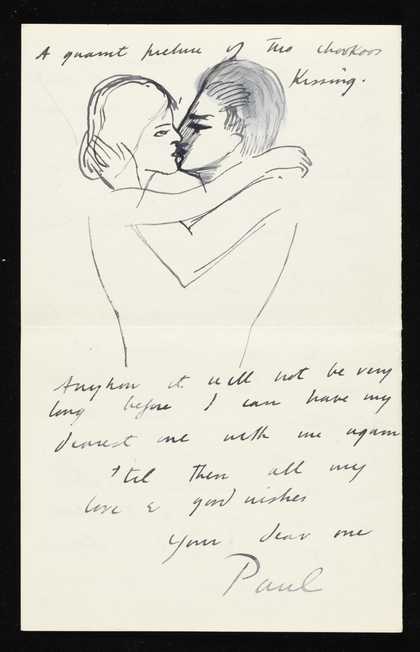 A quaint picture of two chookoos
Kissing.
Anyhow it will not be very
long before I can have my
dearest one with me again
'til then all my
love & good wishes
Your dear one
Paul